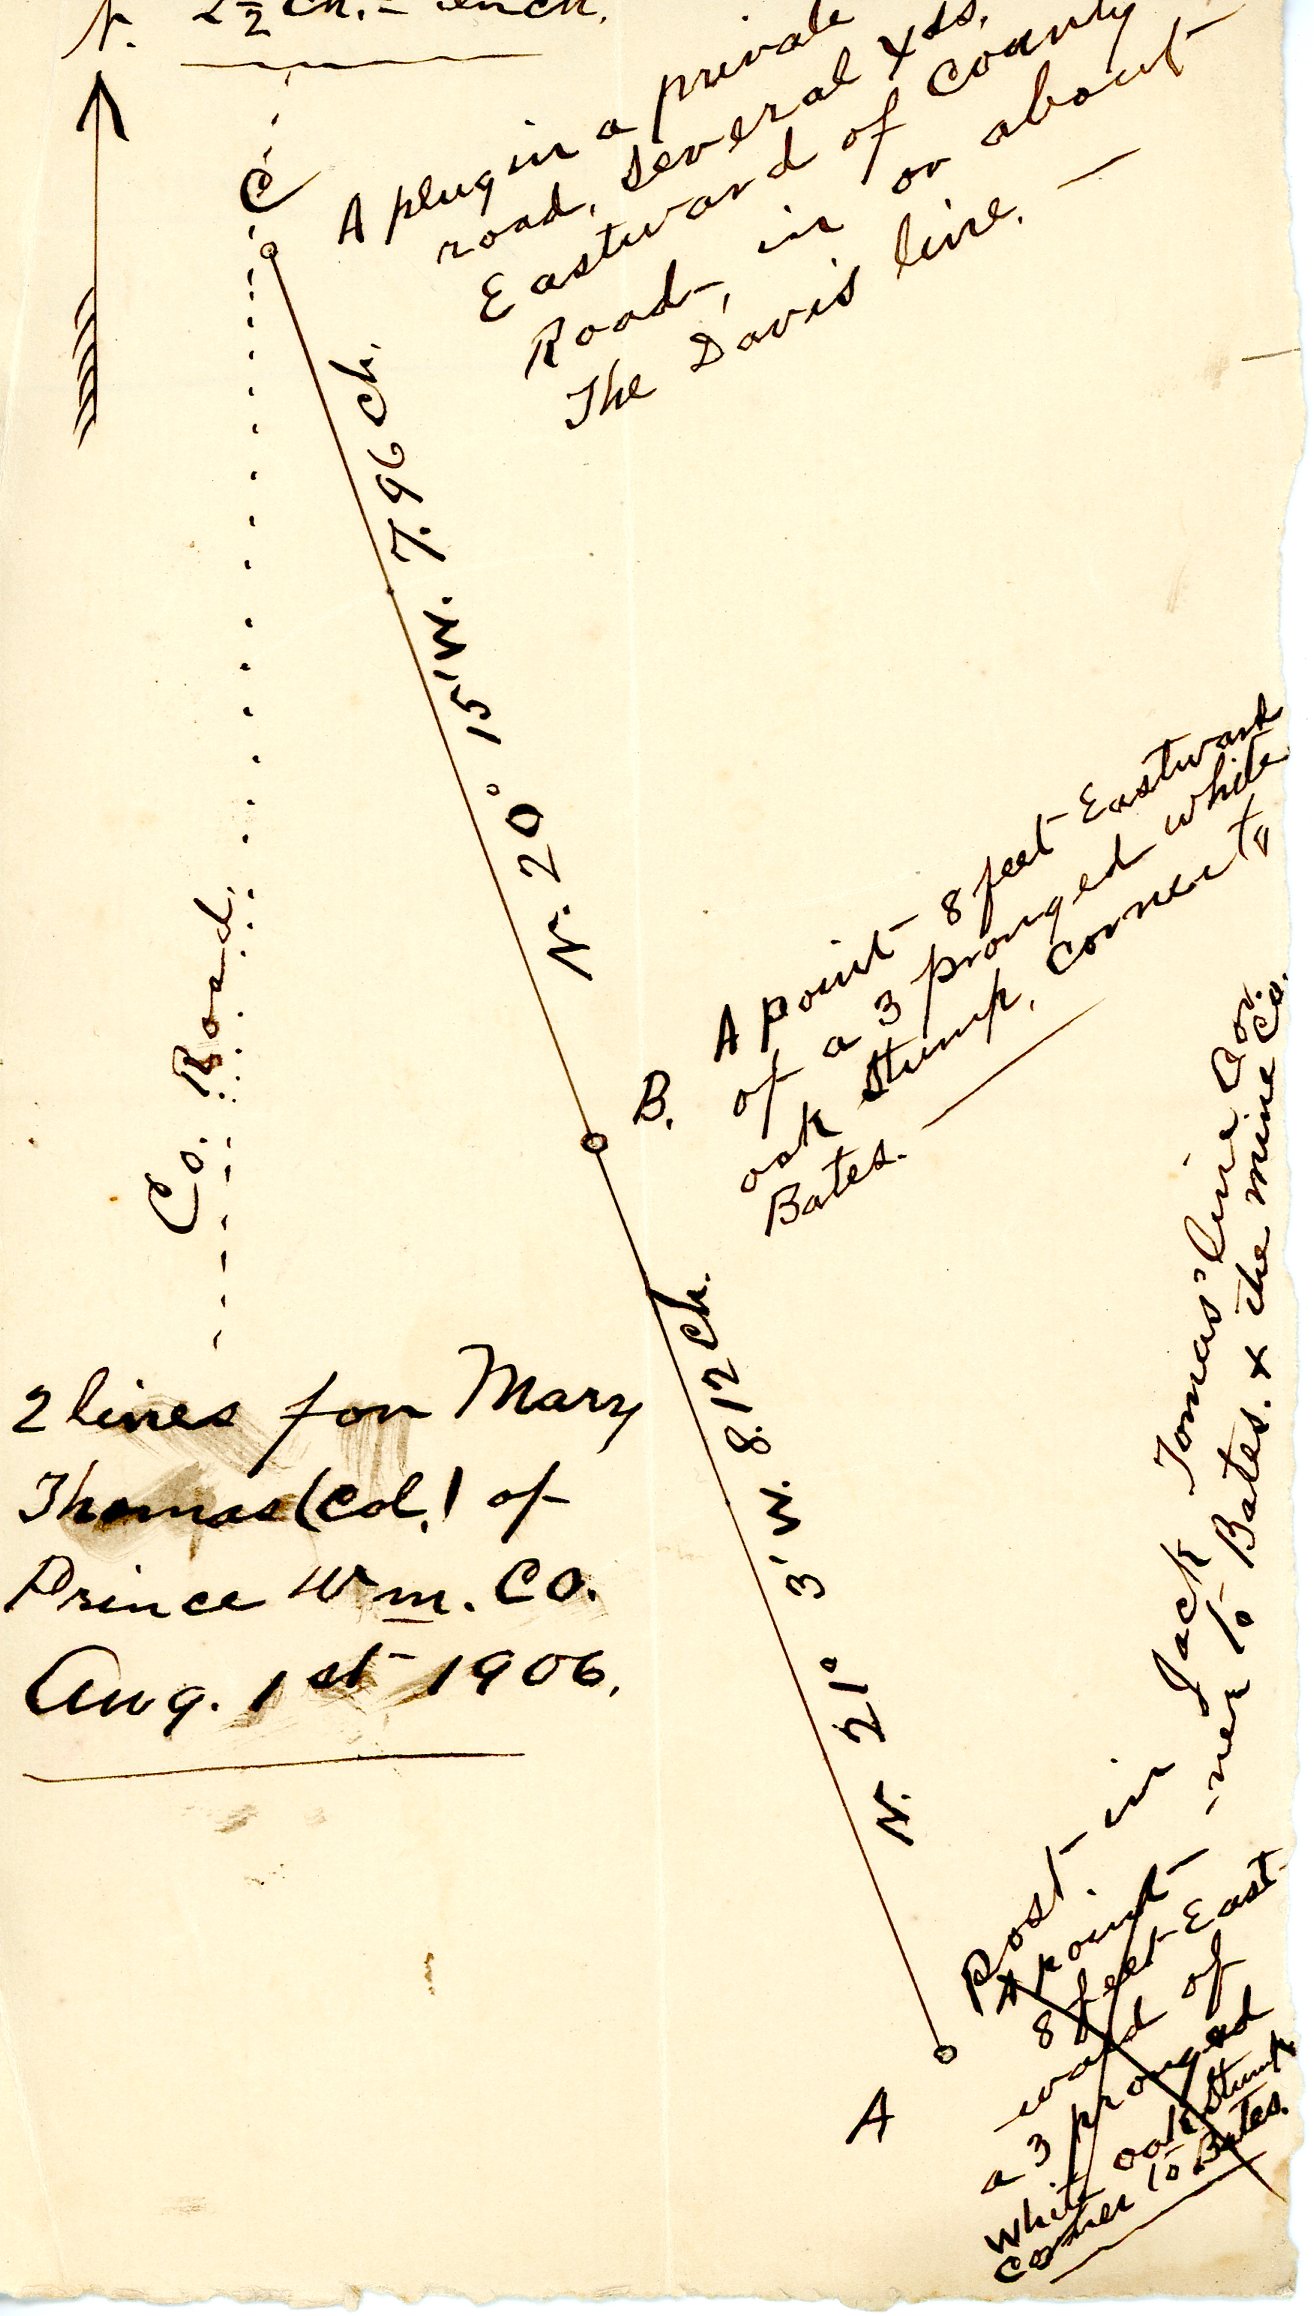 N. 2½ Ch. = inch.
C
A plug in a private
road, several yds.
Eastward of County
Road, in or about
The Davis line.
N. 20° 15' W. 7.96 Ch.
Co. Road.
B.
A point 8 feet Eastward
of a 3 pronged white
oak stump, corner to
Bates.
N. 21° 3' W. 8.12 Ch.
2 lines for Mary
Thomas (Col.) of
Prince Wm. Co.
Aug. 1st 1906.
A
Post in Jack Tomas' line Cor.
-ner to Bates. & the mine Co.
A point
8 feet East-
-ward of
a 3 pronged
white oak stump
corner to Bates.